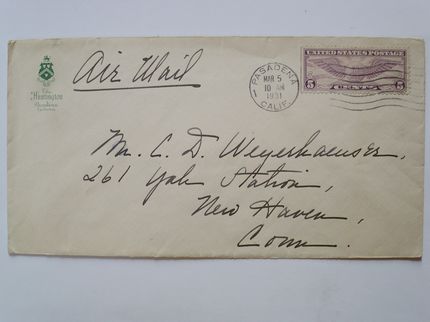 The
Huntington
Pasadena
California
Air Mail
PASADENA
MAR 5
10 AM
1931
CALIF.
1
UNITED STATES POSTAGE
5 CENTS 5
Mr. C. D. Weyerhaeuser,
261 Yale Station,
New Haven,
Conn.